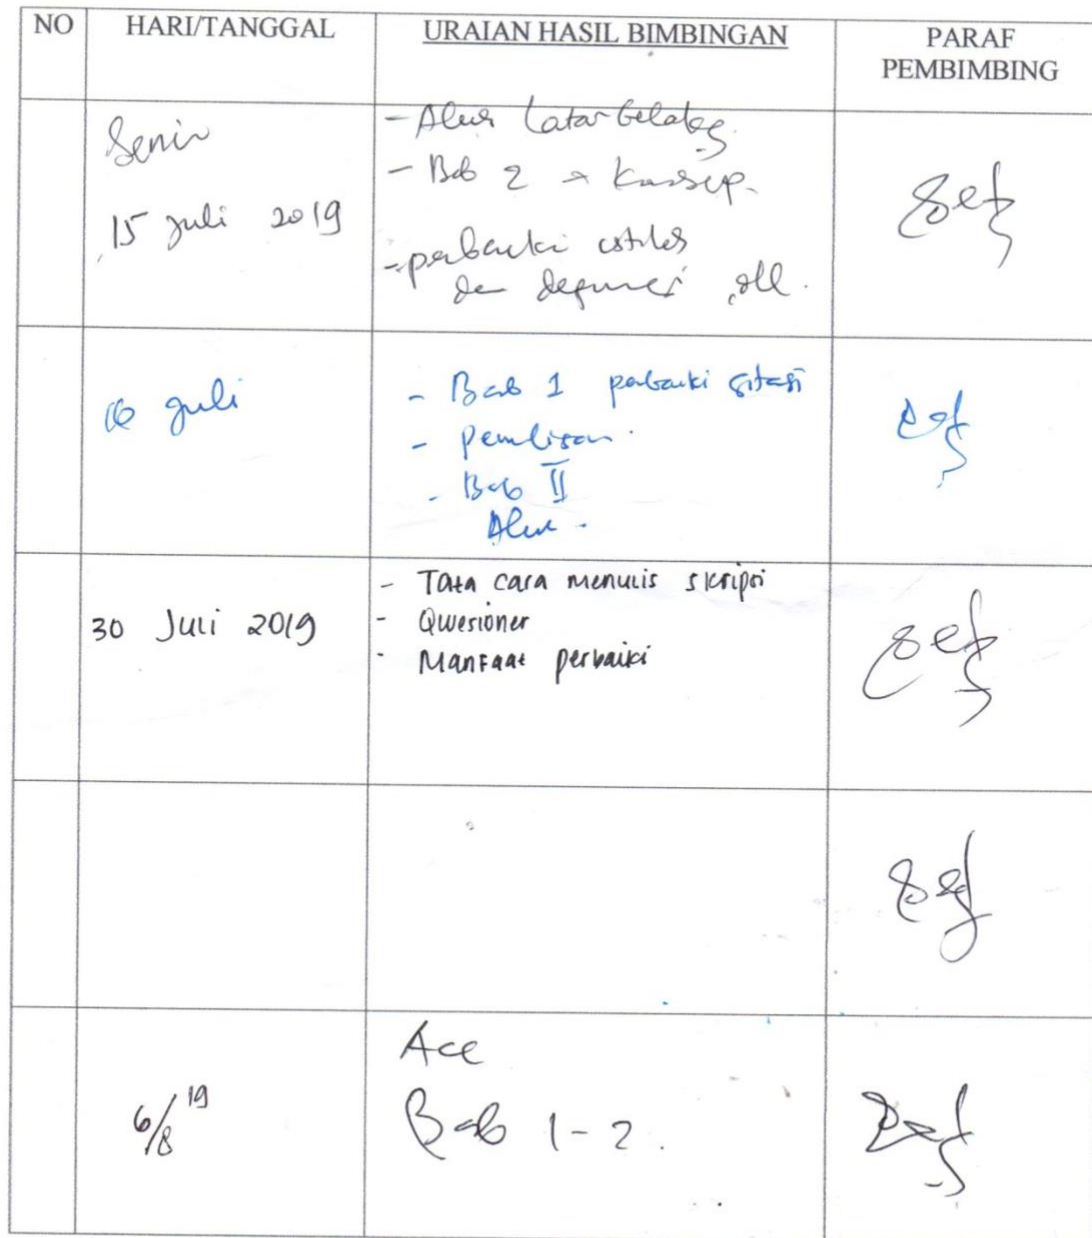 NO HARI/TANGGAL URAIAN HASIL BIMBINGAN PARAF
PEMBIMBING
Senin
15 Juli 2019
- Alur latar belakang
- Bab 2 → konsep.
- perbaiki
dan dll.
16 Juli
- Bab 1 perbaiki sitasi
- Penulisan
- Bab II
Alur.
30 Juli 2019
- Tata cara menulis skripsi
- Qwesioner
- Manfaat perbaiki
6/8 19
Acc
Bab 1-2.